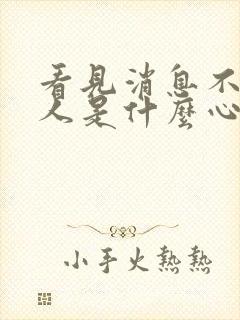 看見消息不
人是什麼心
小手火熱熱